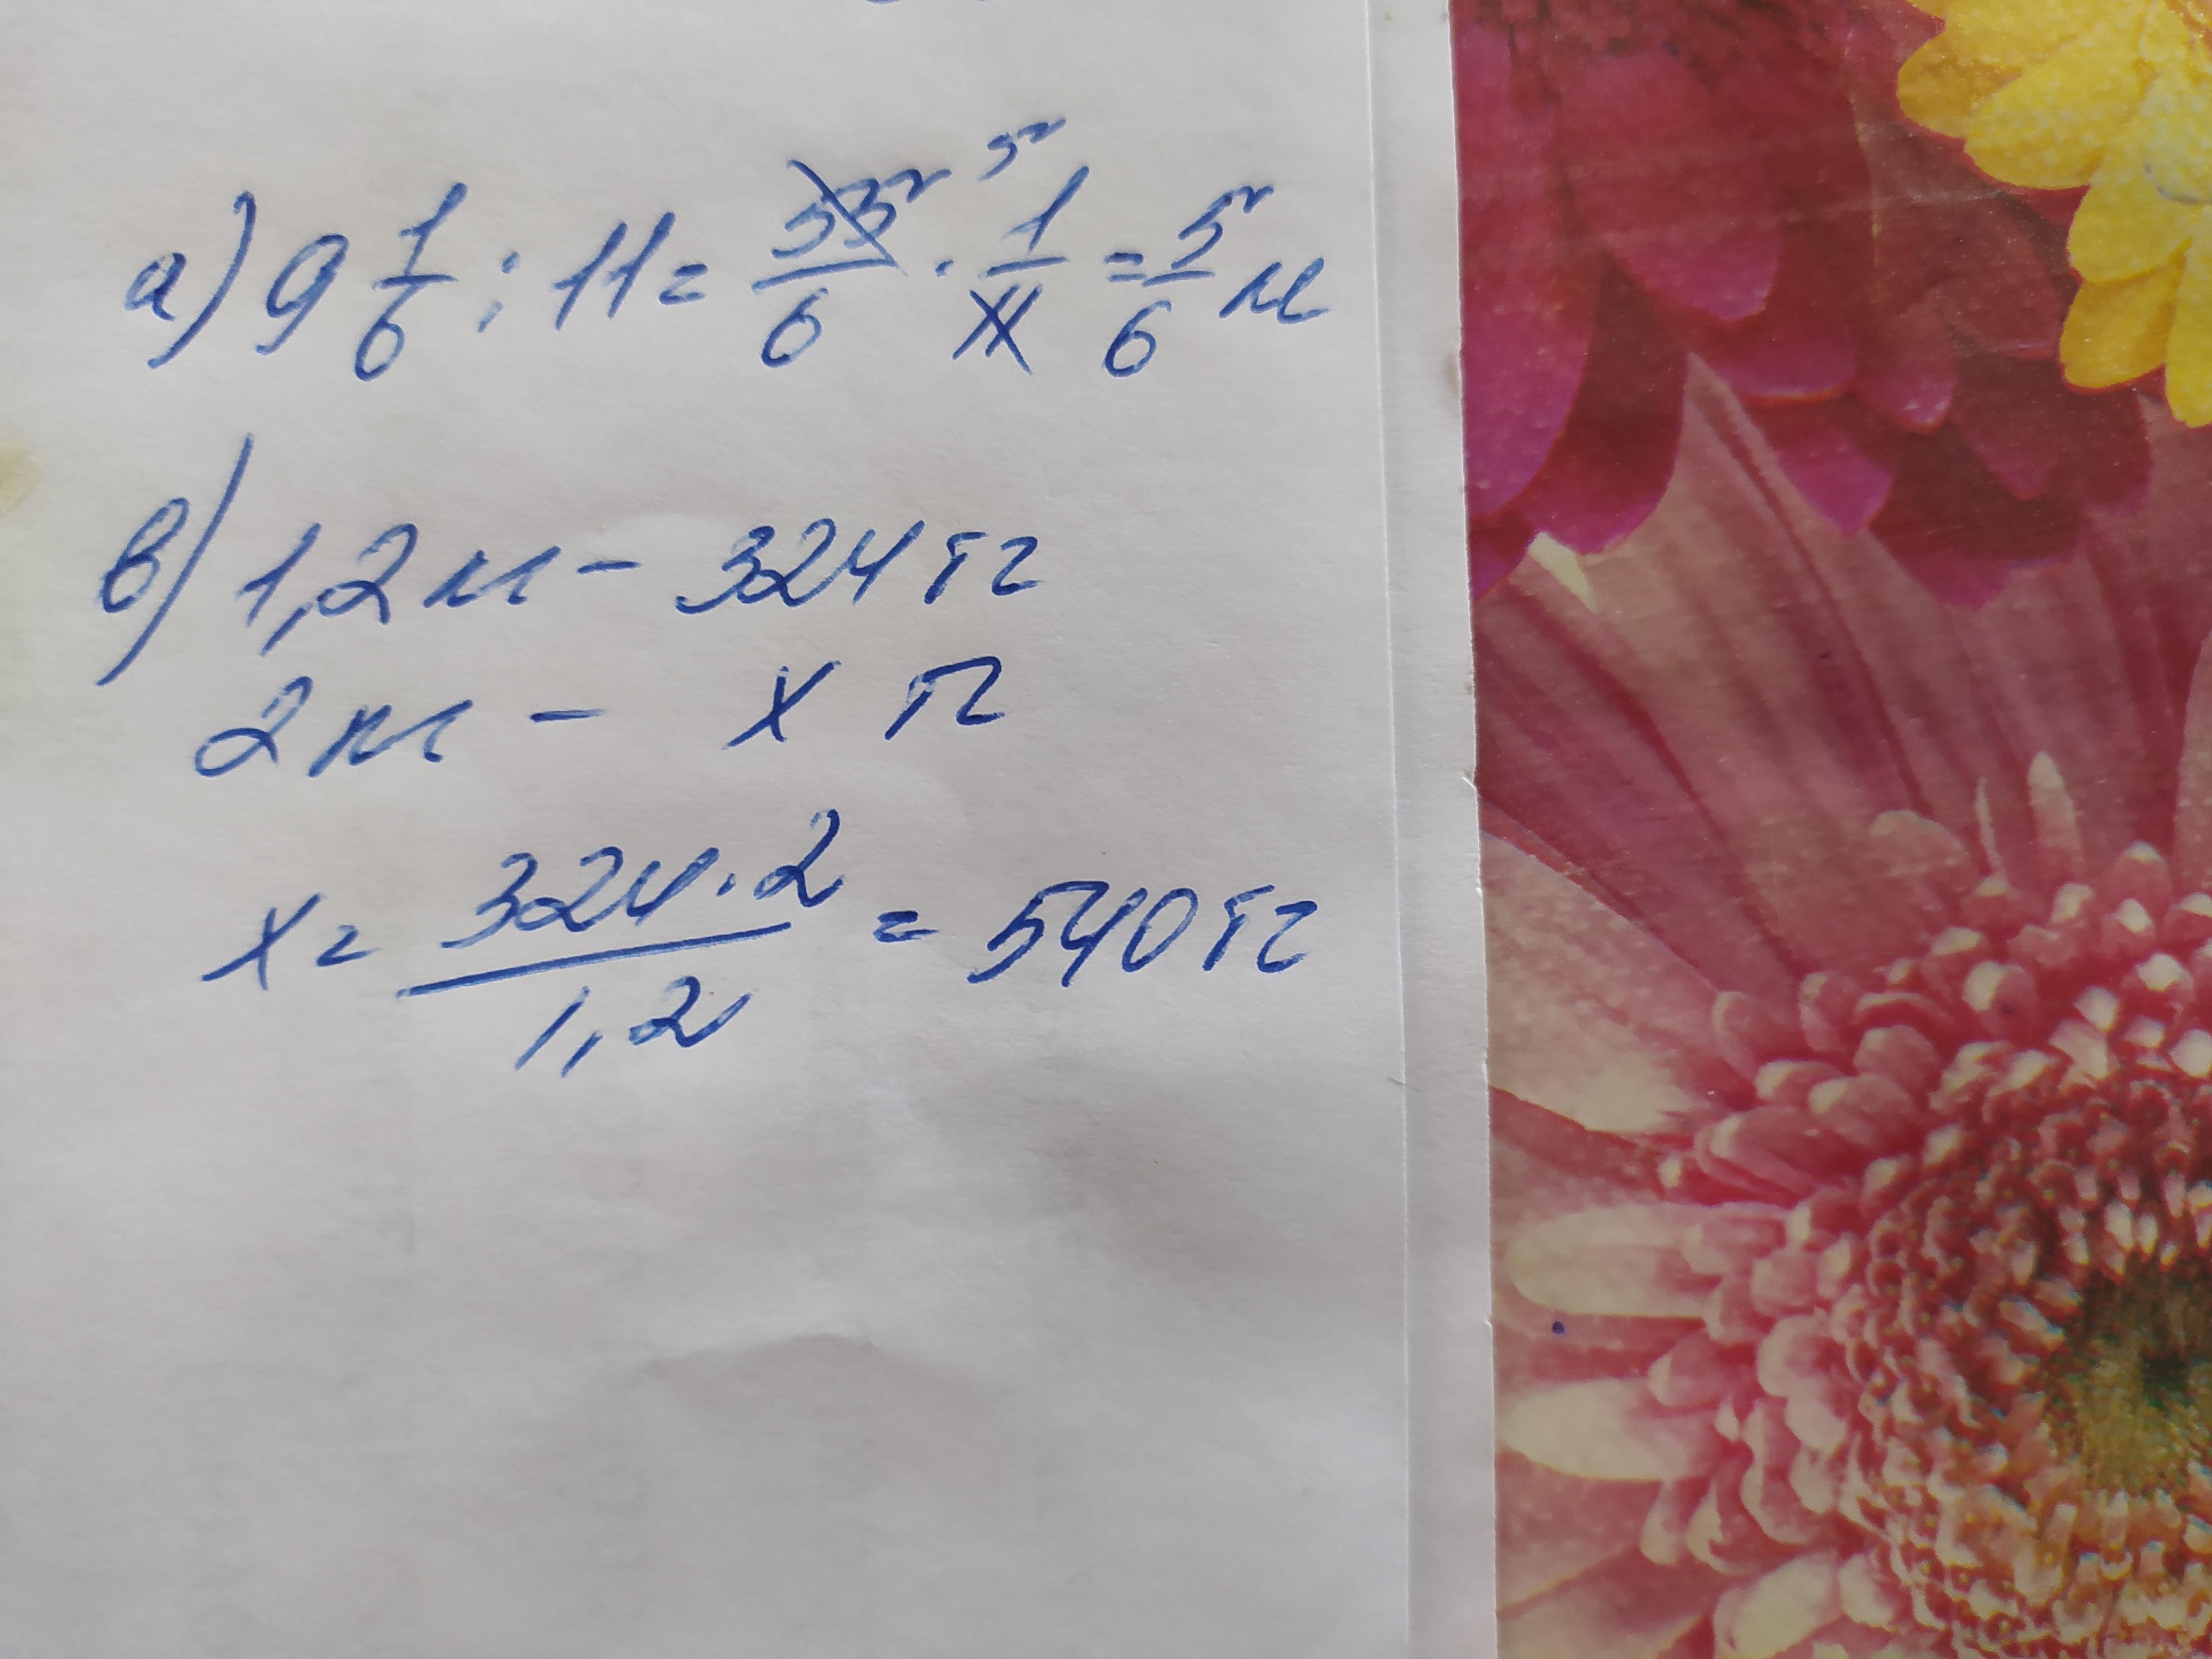 а) 9 1/6 : 11 = 55/6 · 1/11 = 5/6 м
5
в) 1,2 м - 324 тг
2 м - х тг
х = 324 · 2 / 1,2 = 540 тг